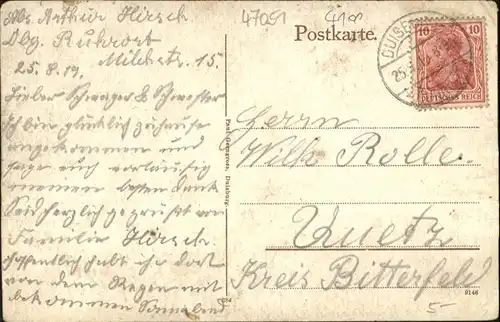 Abs. Arthur Hirsch
Dbg. Ruhrort
Milchstr. 15
25.8.19.
Lieber Schwager & Schwester
Ich bin glücklich zuhause
angekommen und
sage euch vorläufig
meinen besten Dank
Seid herzlich gegrüßt von
Familie Hirsch.
hoffentlich habt ihr dort
von dem Regen mit
bekommen Sonnabend
47051
Postkarte.
DUISB
25
10 10
DEUTSCHES REICH
Herrn
Wilh. Rolle.
Kreis Bitterfeld
9146
5-